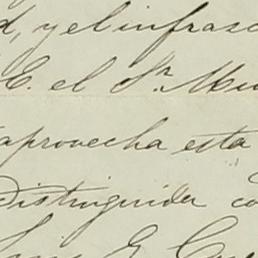 d, y el infrasc
E. el Sr. Min
aprovecha esta
distinguida co
Luis G. Cu